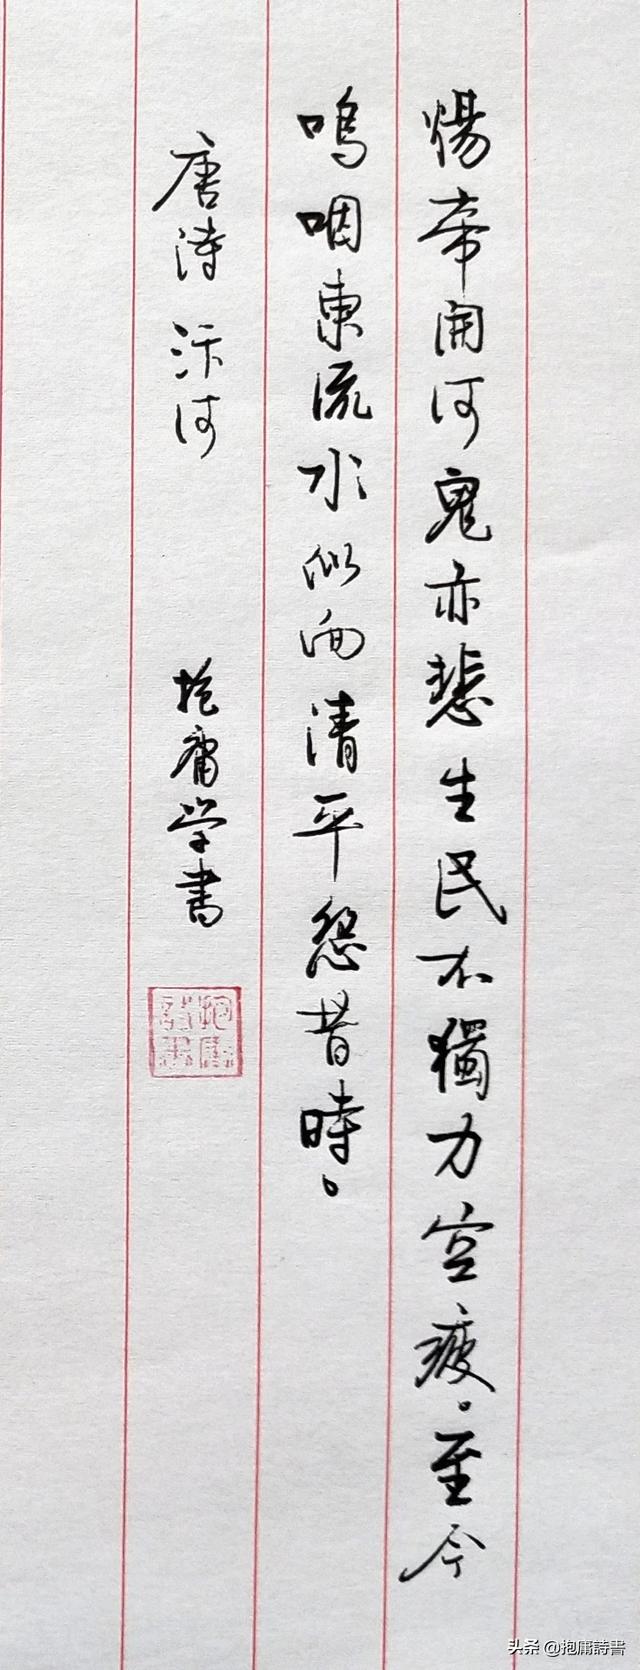 煬帝開河鬼亦悲生民不獨力空疲。至今
嗚咽東流水似向清平怨昔時。
唐詩 汴河 抱庸学書
头条 @抱庸詩書